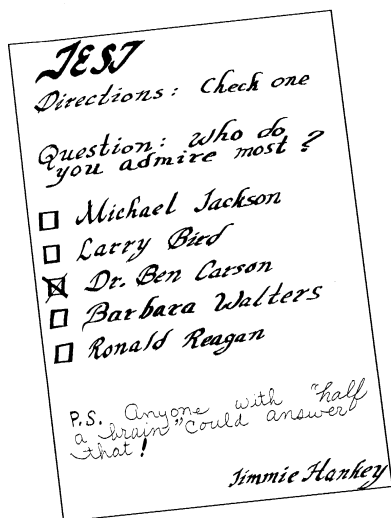 TEST
Directions: Check one
Question: Who do
you admire most?
Michael Jackson
Larry Bird
Dr. Ben Carson
Barbara Walters
Ronald Reagan
P.S. Anyone with "half
a brain" could answer
that!
Jimmie Hankey